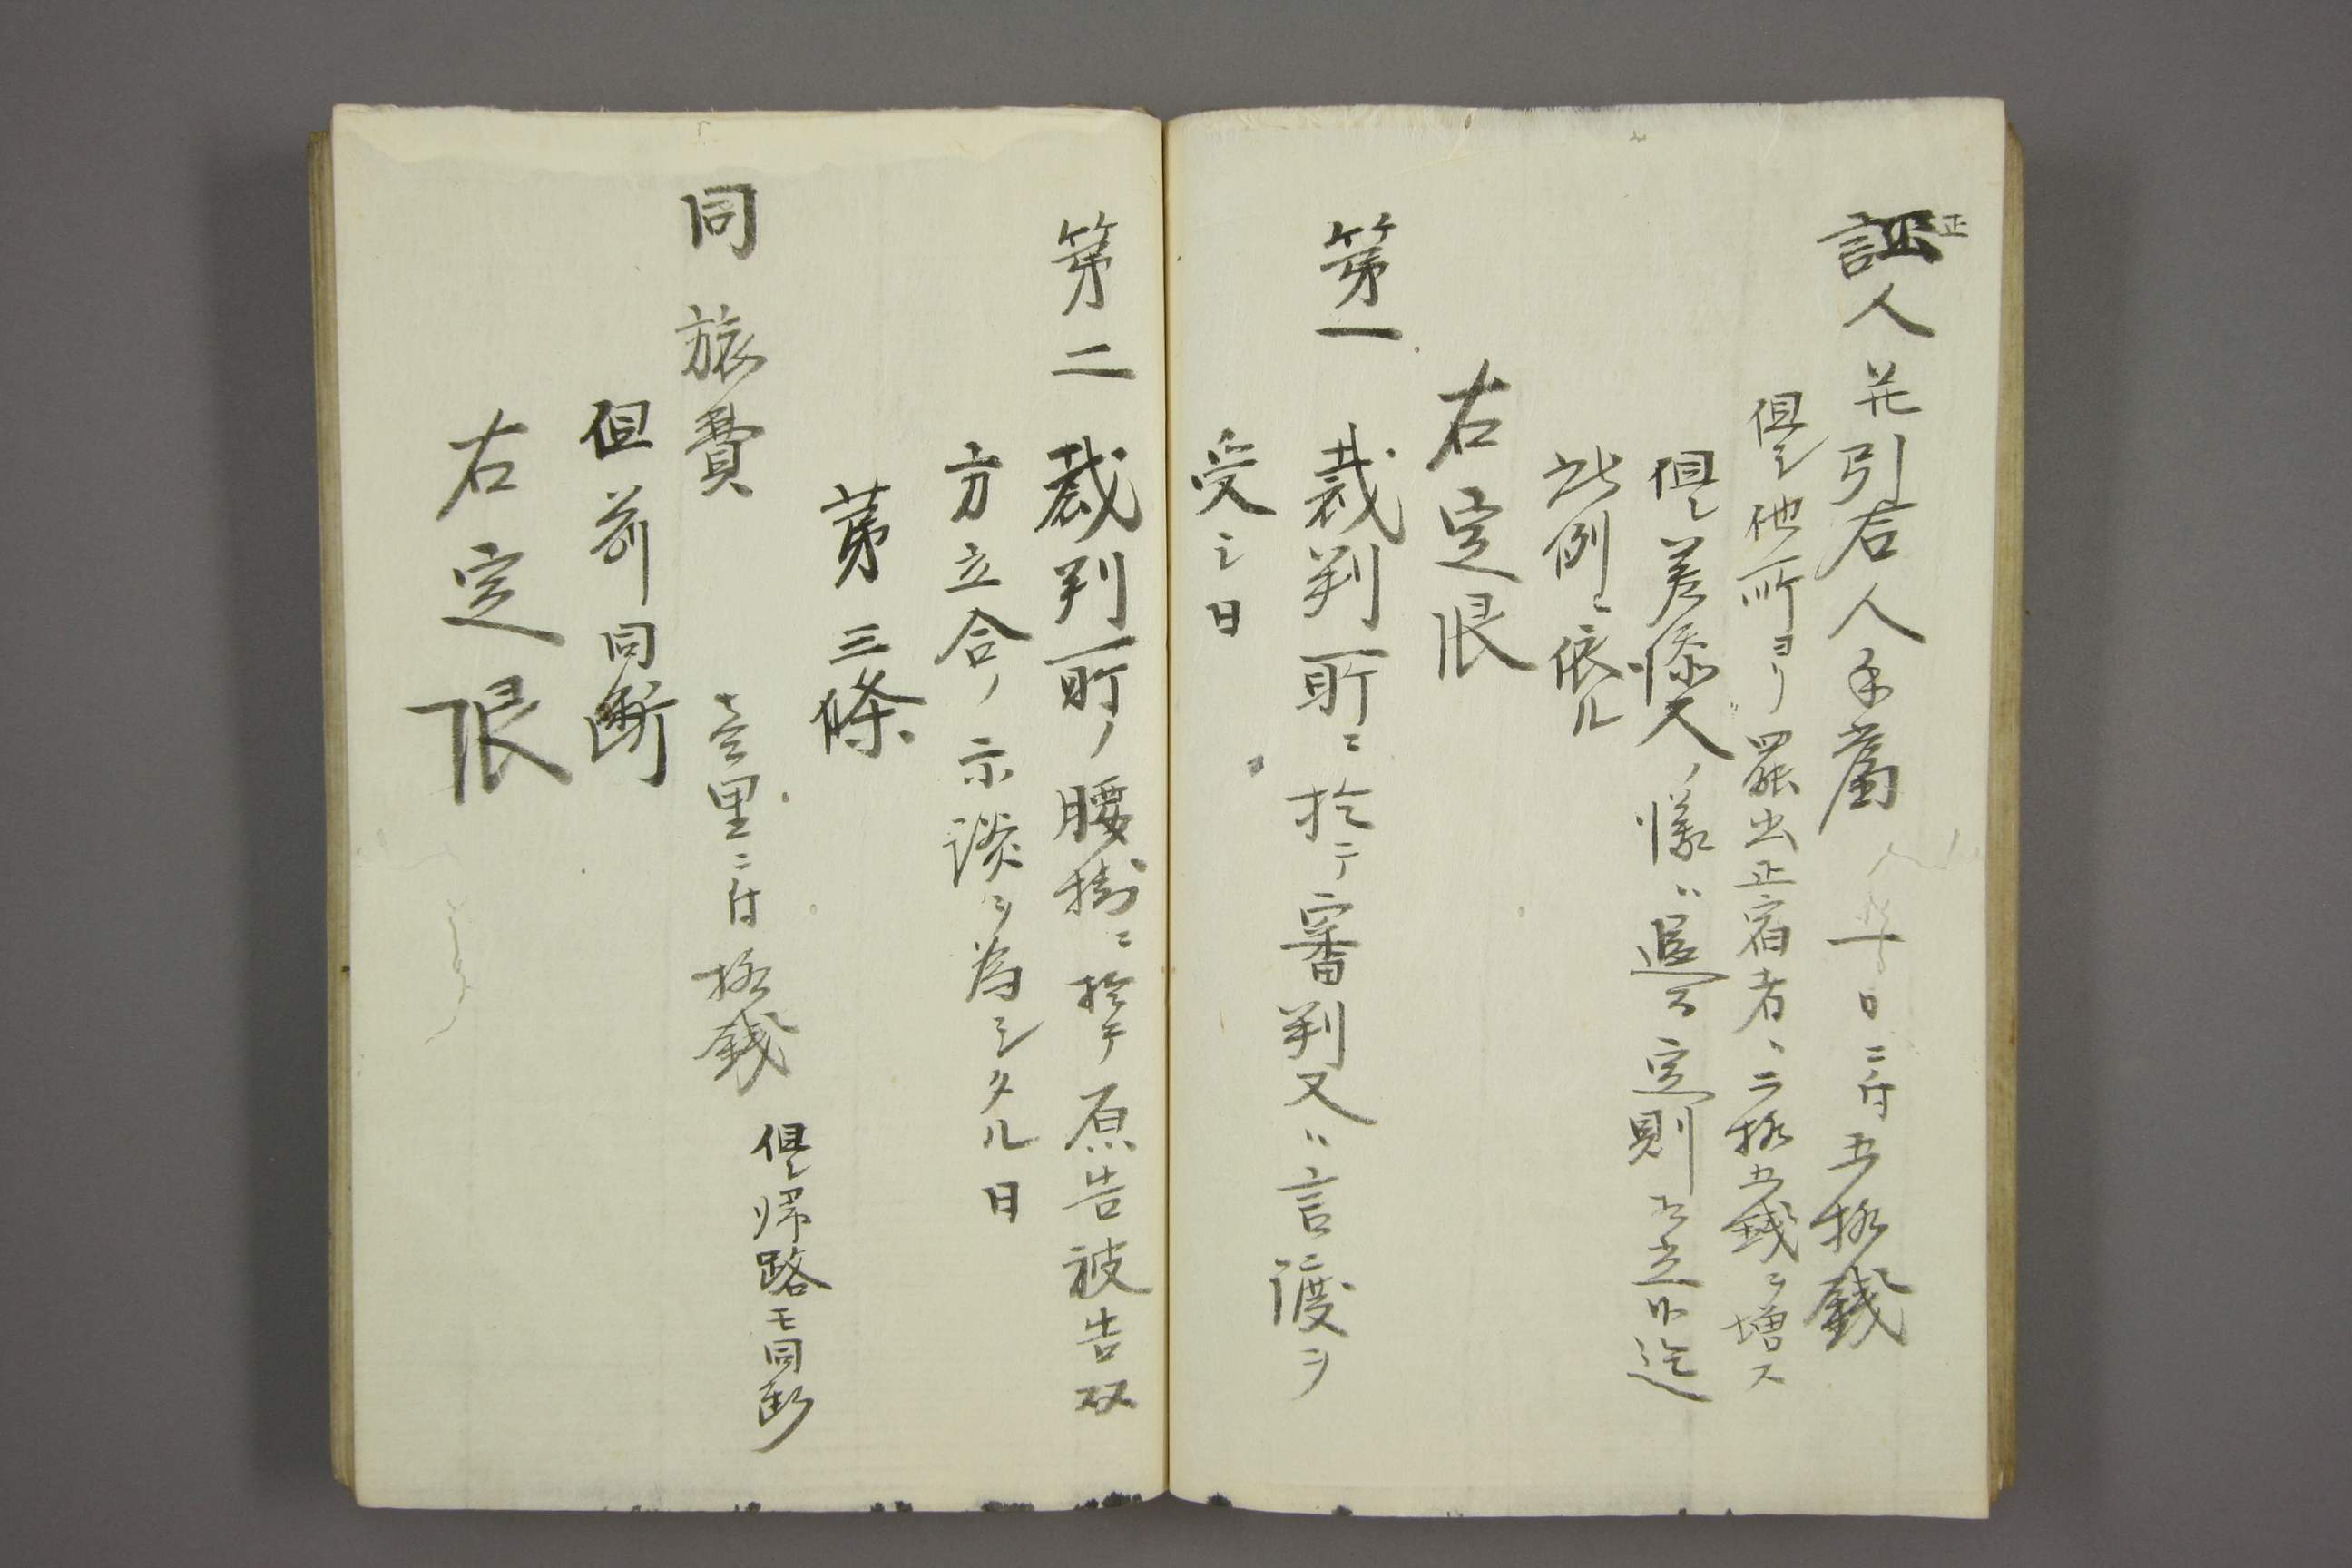 証人并引合人手当 一日ニ付五拾銭
但シ他所ヨリ罷出止宿者ハ二拾五銭ヲ増ス
但シ差添人ノ儀ハ追テ定則相立候迄
此例ニ依ル
右定限
第一 裁判所ニ於テ審判又ハ言渡ヲ
受シ日
第二 裁判所ノ腰掛ニ於テ原告被告双
方立合ノ示談ヲ為シタル日
第三條
同旅費 壱里ニ付拾銭 但シ帰路モ同断
但前同断
右定限